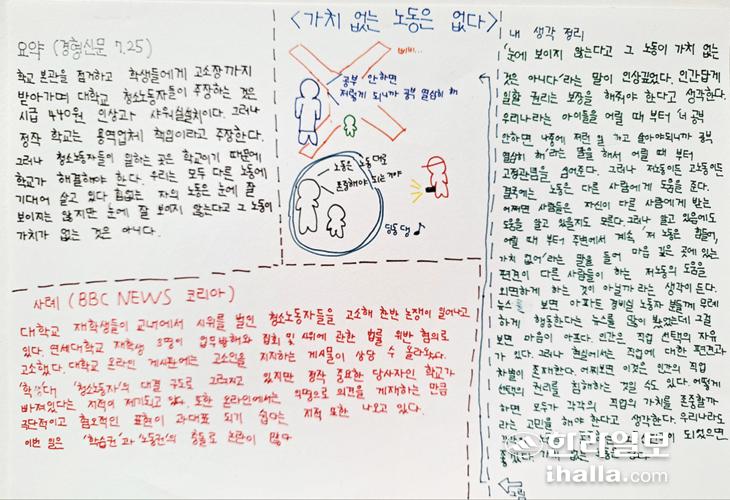 <가치 없는 노동은 없다>
요약 (경향신문 7.25)
학교 본관을 점거하고 학생들에게 고소장까지
받아가며 대학교 청소노동자들이 주장하는 것은
시급 440원 인상과 샤워실설치이다. 그러나
정작 학교는 용역업체 책임이라고 주장한다.
그러나 청소노동자들이 일하는 곳은 학교이기 때문에
학교가 해결해야 한다. 우리는 모두 다른 노동에
기대어 살고 있다. 힘없는 자의 노동은 눈에 잘
보이지는 않지만 눈에 잘 보이지 않는다고 그 노동이
가치가 없는 것은 아니다.
삐비...
공부 안하면
저렇게 되니까 공부 열심히 해
노동은 노동대로
존중해야 되는거야
딩동댕♪
사례 (BBC NEWS 코리아)
대학교 재학생들이 교내에서 시위를 벌인 청소노동자들을 고소해 찬반 논쟁이 일어나고
있다. 연세대학교 재학생 3명이 업무방해와 집회 및 시위에 관한 법률 위반 혐의로
고소했다. 대학교 온라인 게시판에는 고소인을 지지하는 게시물이 상당 수 올라왔다.
'학생대 청소노동자'의 대결 구도로 그려지고 있지만 정작 중요한 당사자인 학교가
빠져있다는 지적이 제기되고 있다. 또한 온라인에서는 익명으로 의견을 게재하는 만큼
극단적이고 혐오적인 표현이 과대표 되기 쉽다는 지적 또한 나오고 있다.
이번 일은 '학습권'과 '노동권'의 충돌로 논란이 많다
내 생각 정리
'눈에 보이지 않는다고 그 노동이 가치 없는
것은 아니다'라는 말이 인상깊었다. 인간답게
일할 권리는 보장을 해줘야 한다고 생각한다.
우리나라는 아이들을 어릴 때 부터 '너 공부
안하면 나중에 저런 일 하고 살아야되니까 공부
열심히 해'라는 말을 해서 어릴 때 부터
고정관념을 심어준다. 그러나 저노동이든 고노동이든
결국에는 노동은 다른 사람에게 도움을 준다.
어쩌면 사람들은 자신이 다른 사람에게 받는
도움을 알고 있을지도 모른다. 그러나 알고 있음에도
어릴 때 부터 주변에서 계속 '저 노동은 힘들어,
가치 없어'라는 말을 들어 마음 깊은 곳에 있는
편견이 다른 사람들이 하는 저 노동의 도움을
외면하게 하는 것이 아닐까 라는 생각이 든다.
뉴스를 보면 아파트 경비실 노동자 분들께 무례
하게 행동한다는 뉴스를 많이 봤었는데 그걸
보면 마음이 아프다. 인간은 직업 선택의 자유
가 있다. 그러나 현실에서는 직업에 대한 편견과
차별이 존재한다. 어찌보면 이것은 인간의 직업
선택의 권리를 침해하는 것일 수도 있다. 어떻게
하면 모두가 각각의 직업의 가치를 존중할까
라는 고민을 해야 한다고 생각한다. 우리나라도
되었으면
좋겠다. 가치 없는 노동은 없다.
그림
한라일보
ihalla.com